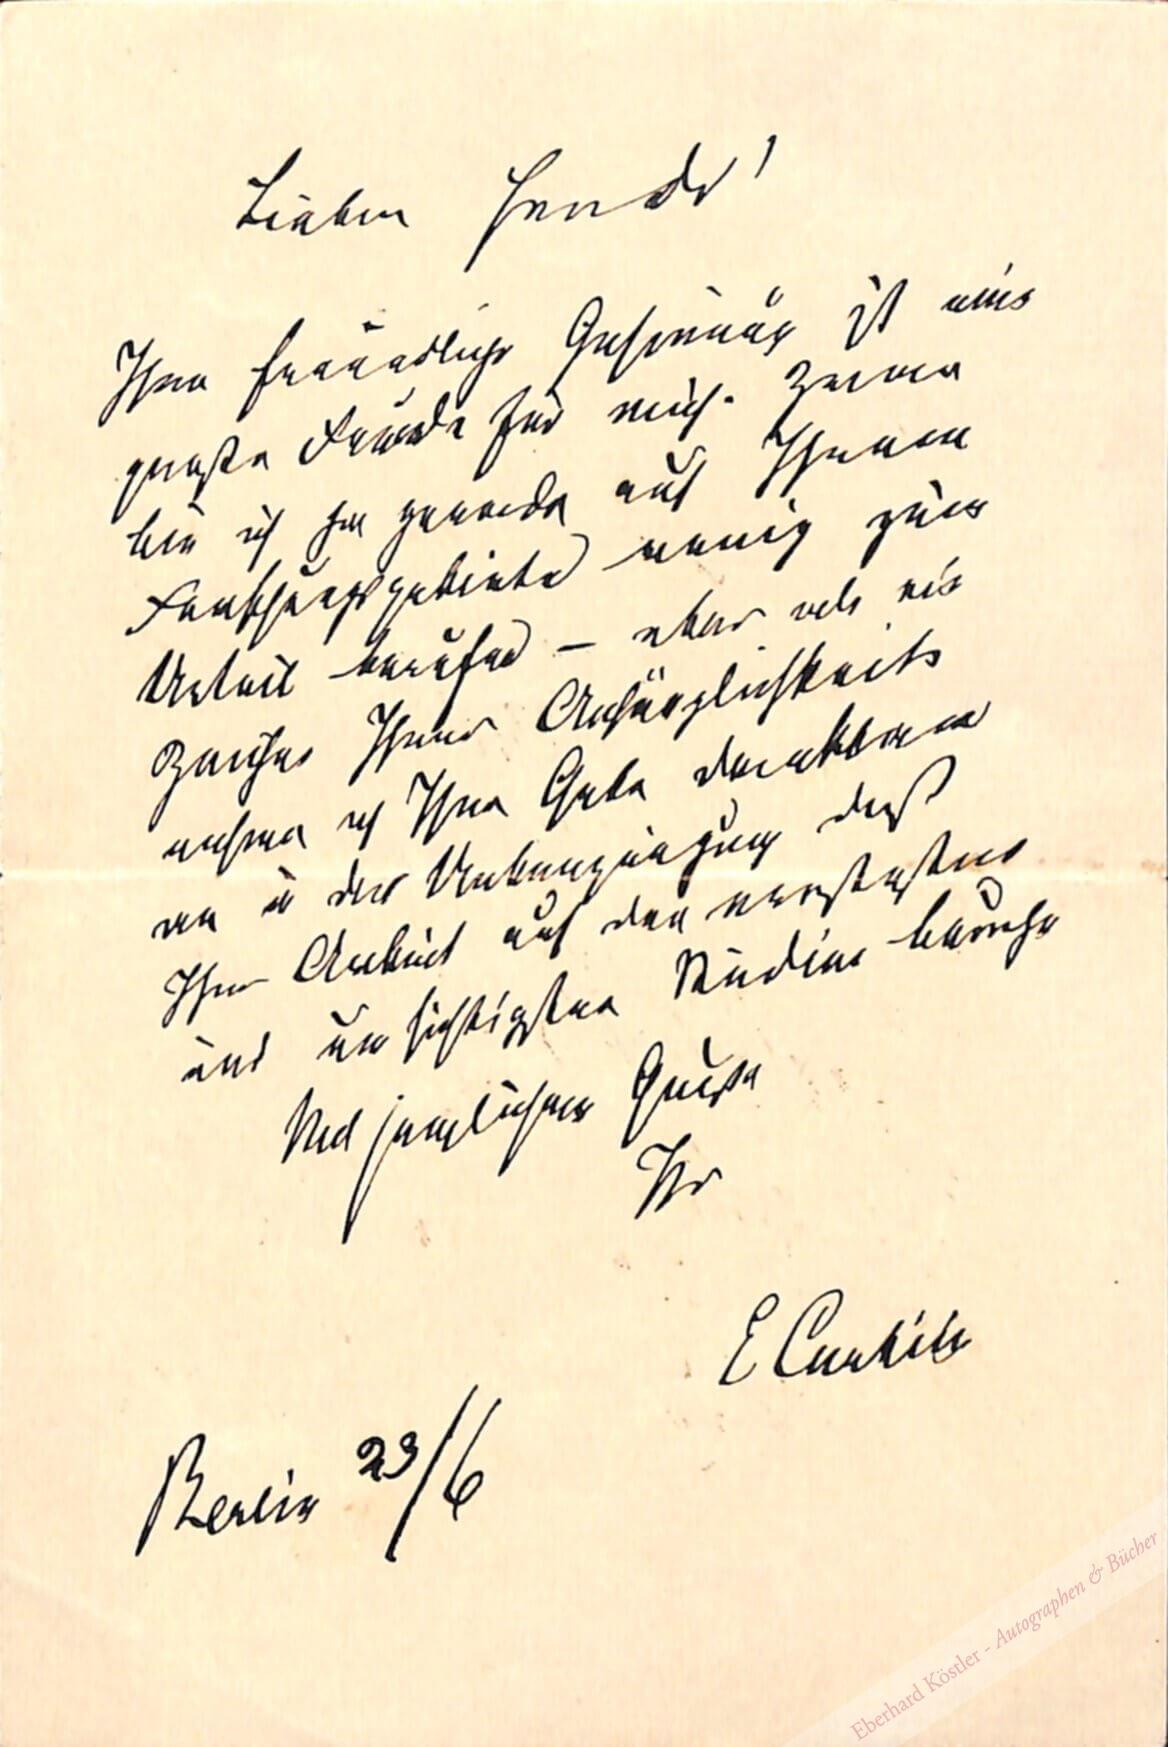 Lieber Freund!
Ihre freundliche Gesinnung ist eine
große Freude für mich. Zwar
bin ich ja gerade auf Ihrem
Forschungsgebiete wenig zum
Urteil berufen – aber als ein
Zeichen Ihrer Anhänglichkeit
nehme ich Ihre Gabe dankbar
an in der Ueberzeugung daß
Ihre Arbeit auf den ernstesten
und umsichtigsten Studien beruhe
Mit herzlichem Gruße
Ihr
E Curtius
Berlin 23/6
Eberhard Köstler - Autographen & Bücher